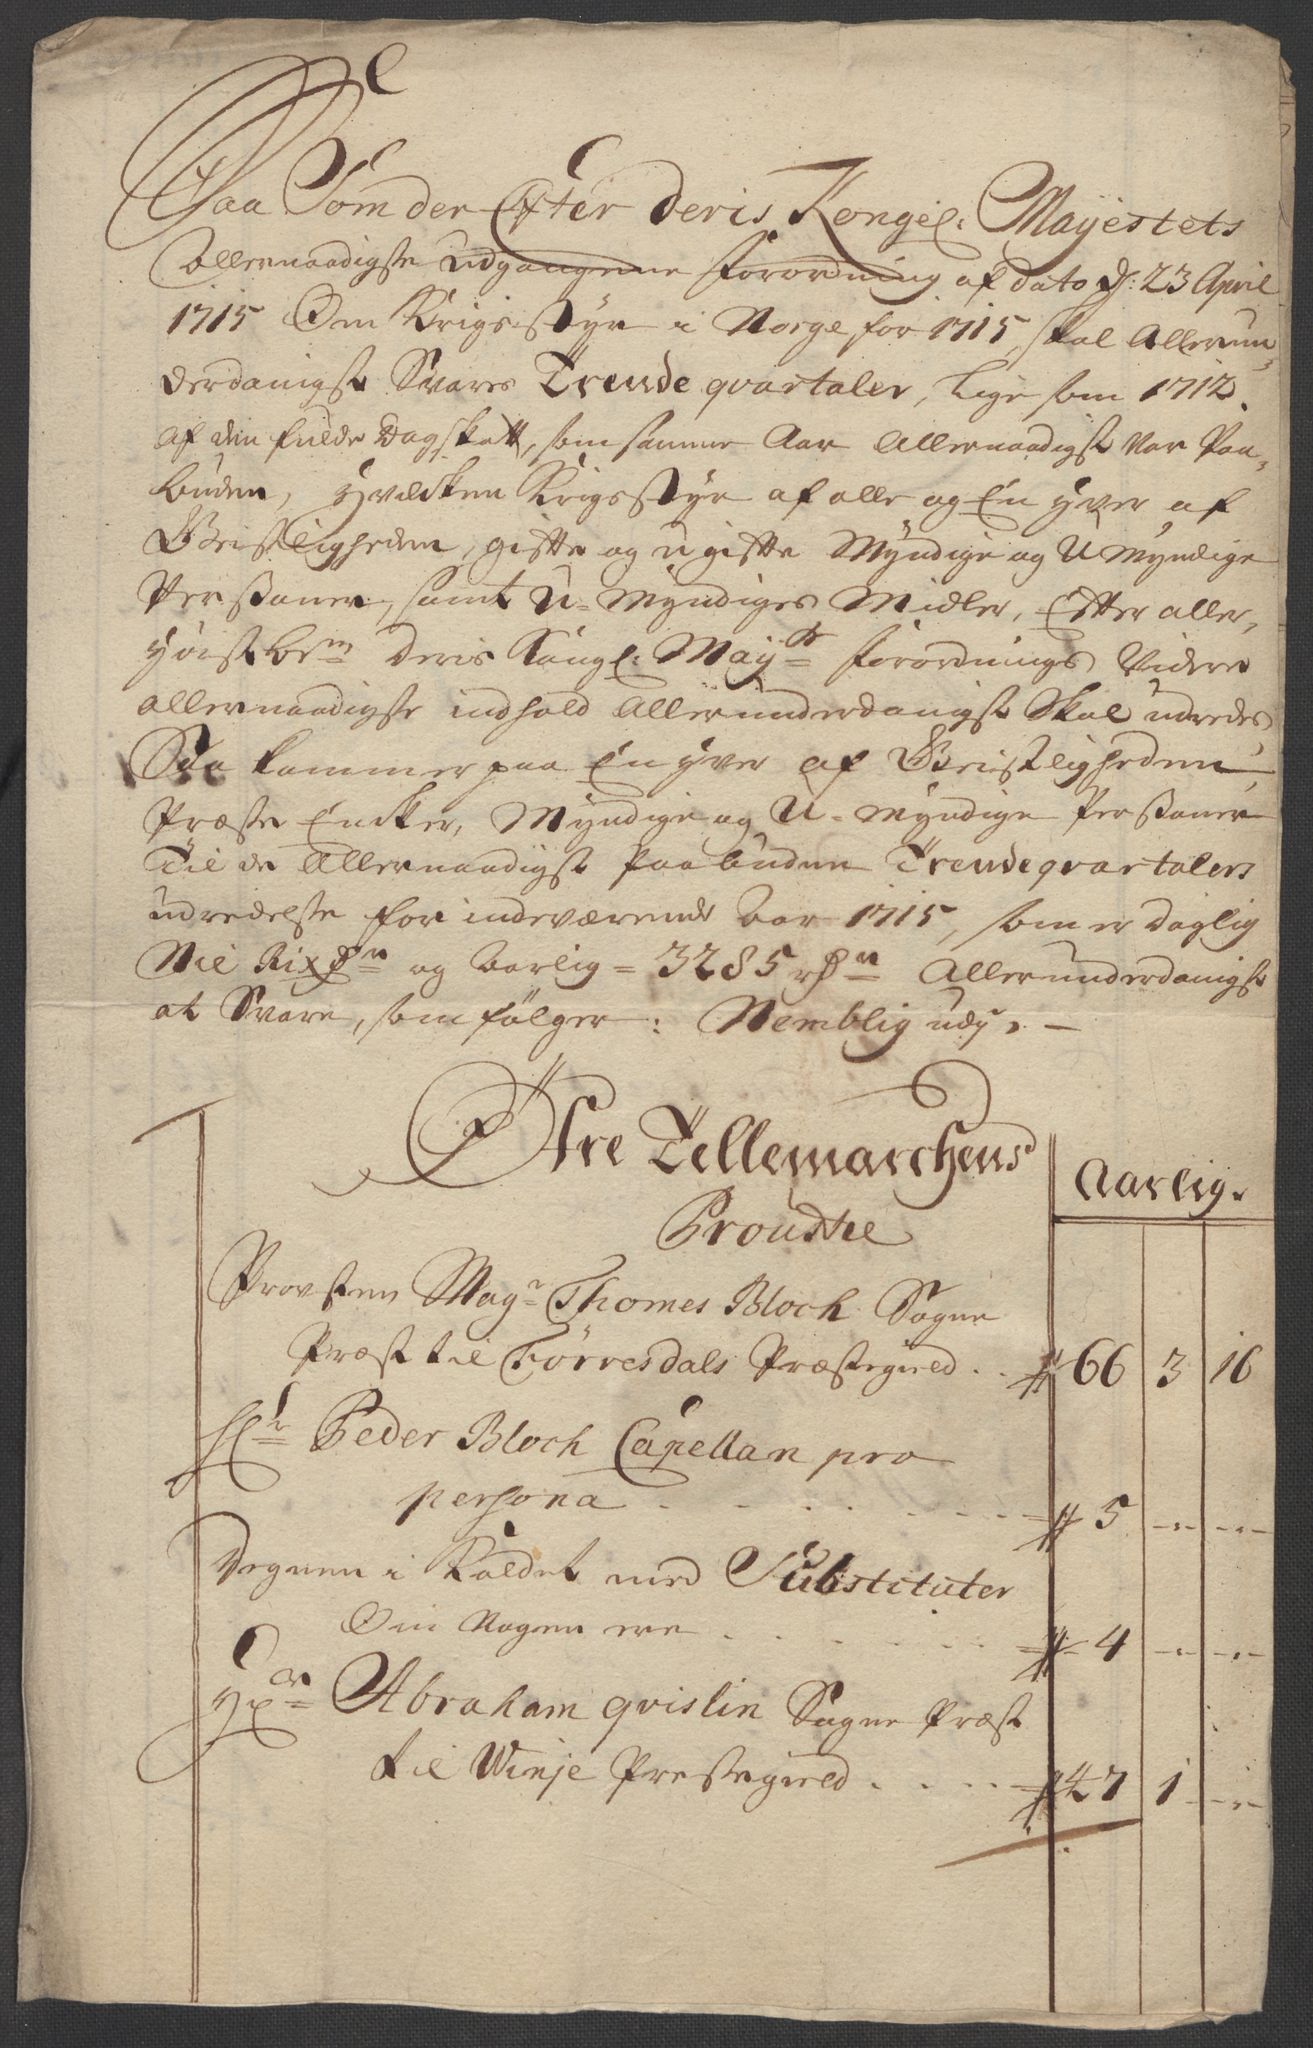 Saa Som der Efter deris Kongel: Mayestets
Allernaadigste udgangene Forordning af dato d: 23 April
1715 Om Krigs-Styr i Norge for 1715, skal Allerun-
derdanigst Svares Trende qvartaler, lige som 1712.
af den fulde Dagskatt, som samme Aar Allernaadigst var Paa-
buden, hvilcken Krigsstyr af alle og En hver af
Geistligheden, giffte og ugiffte Myndige og Umyndige
Persaner, samt U-Myndiges Midler, Efter aller-
høist bem.te Deris Kongl: May.ts Forordnings Videre
allernaadigste indhold Allerunderdanigst Skal udredes
Saa kommer paa En hver af Geistligheden,
Præste Encker, Myndige og U-myndige Persaner
Til de Allernaadigst Paabudne Trende qvartalers
udredelse for indeværende Aar 1715, som er daglig
Nie Rixd.r og Aarlig = 3285 rd.r Allerunderdanigst
at Svare, som følger: Nemblig udj. —
Øfre Tellemarchens
Aarlig.
Proustie
Provsten Mag.r Thomes Bloch Sogne
Præst til Tørresdals Præstegield . . # 66 3 16
H.r Peder Bloch Capellan pro
persona . . . . . . # 5 - -
Degnen i Kaldet med Substituter
Om Nogen ere . . . . . . # 4 - -
H.r Abraham qvislin Sogne Præst
til Winje Prestegield . . . . # 47 1 -